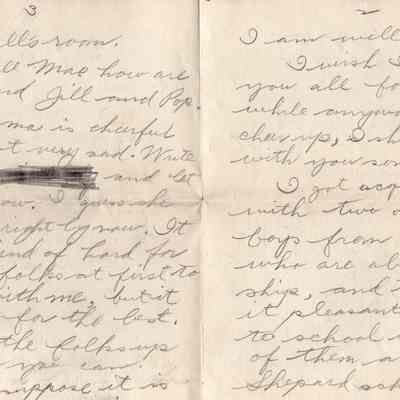 3
ell's room.
ll Mae how are
nd Jill and Pop.
ma is cheerful
t very sad. Write
and let
ow. I guess she
right by now. It
ind of hard for
folks at first to
with me, but it
for the best.
the folks up
you can.
uppose it is
2
I am well
I wish I
you all fo
while anywa
cheer up, I sh
with you som
I got acq
with two o
boys from
who are ab
ship, and
it pleasant
to school
of them a
Shepard sch